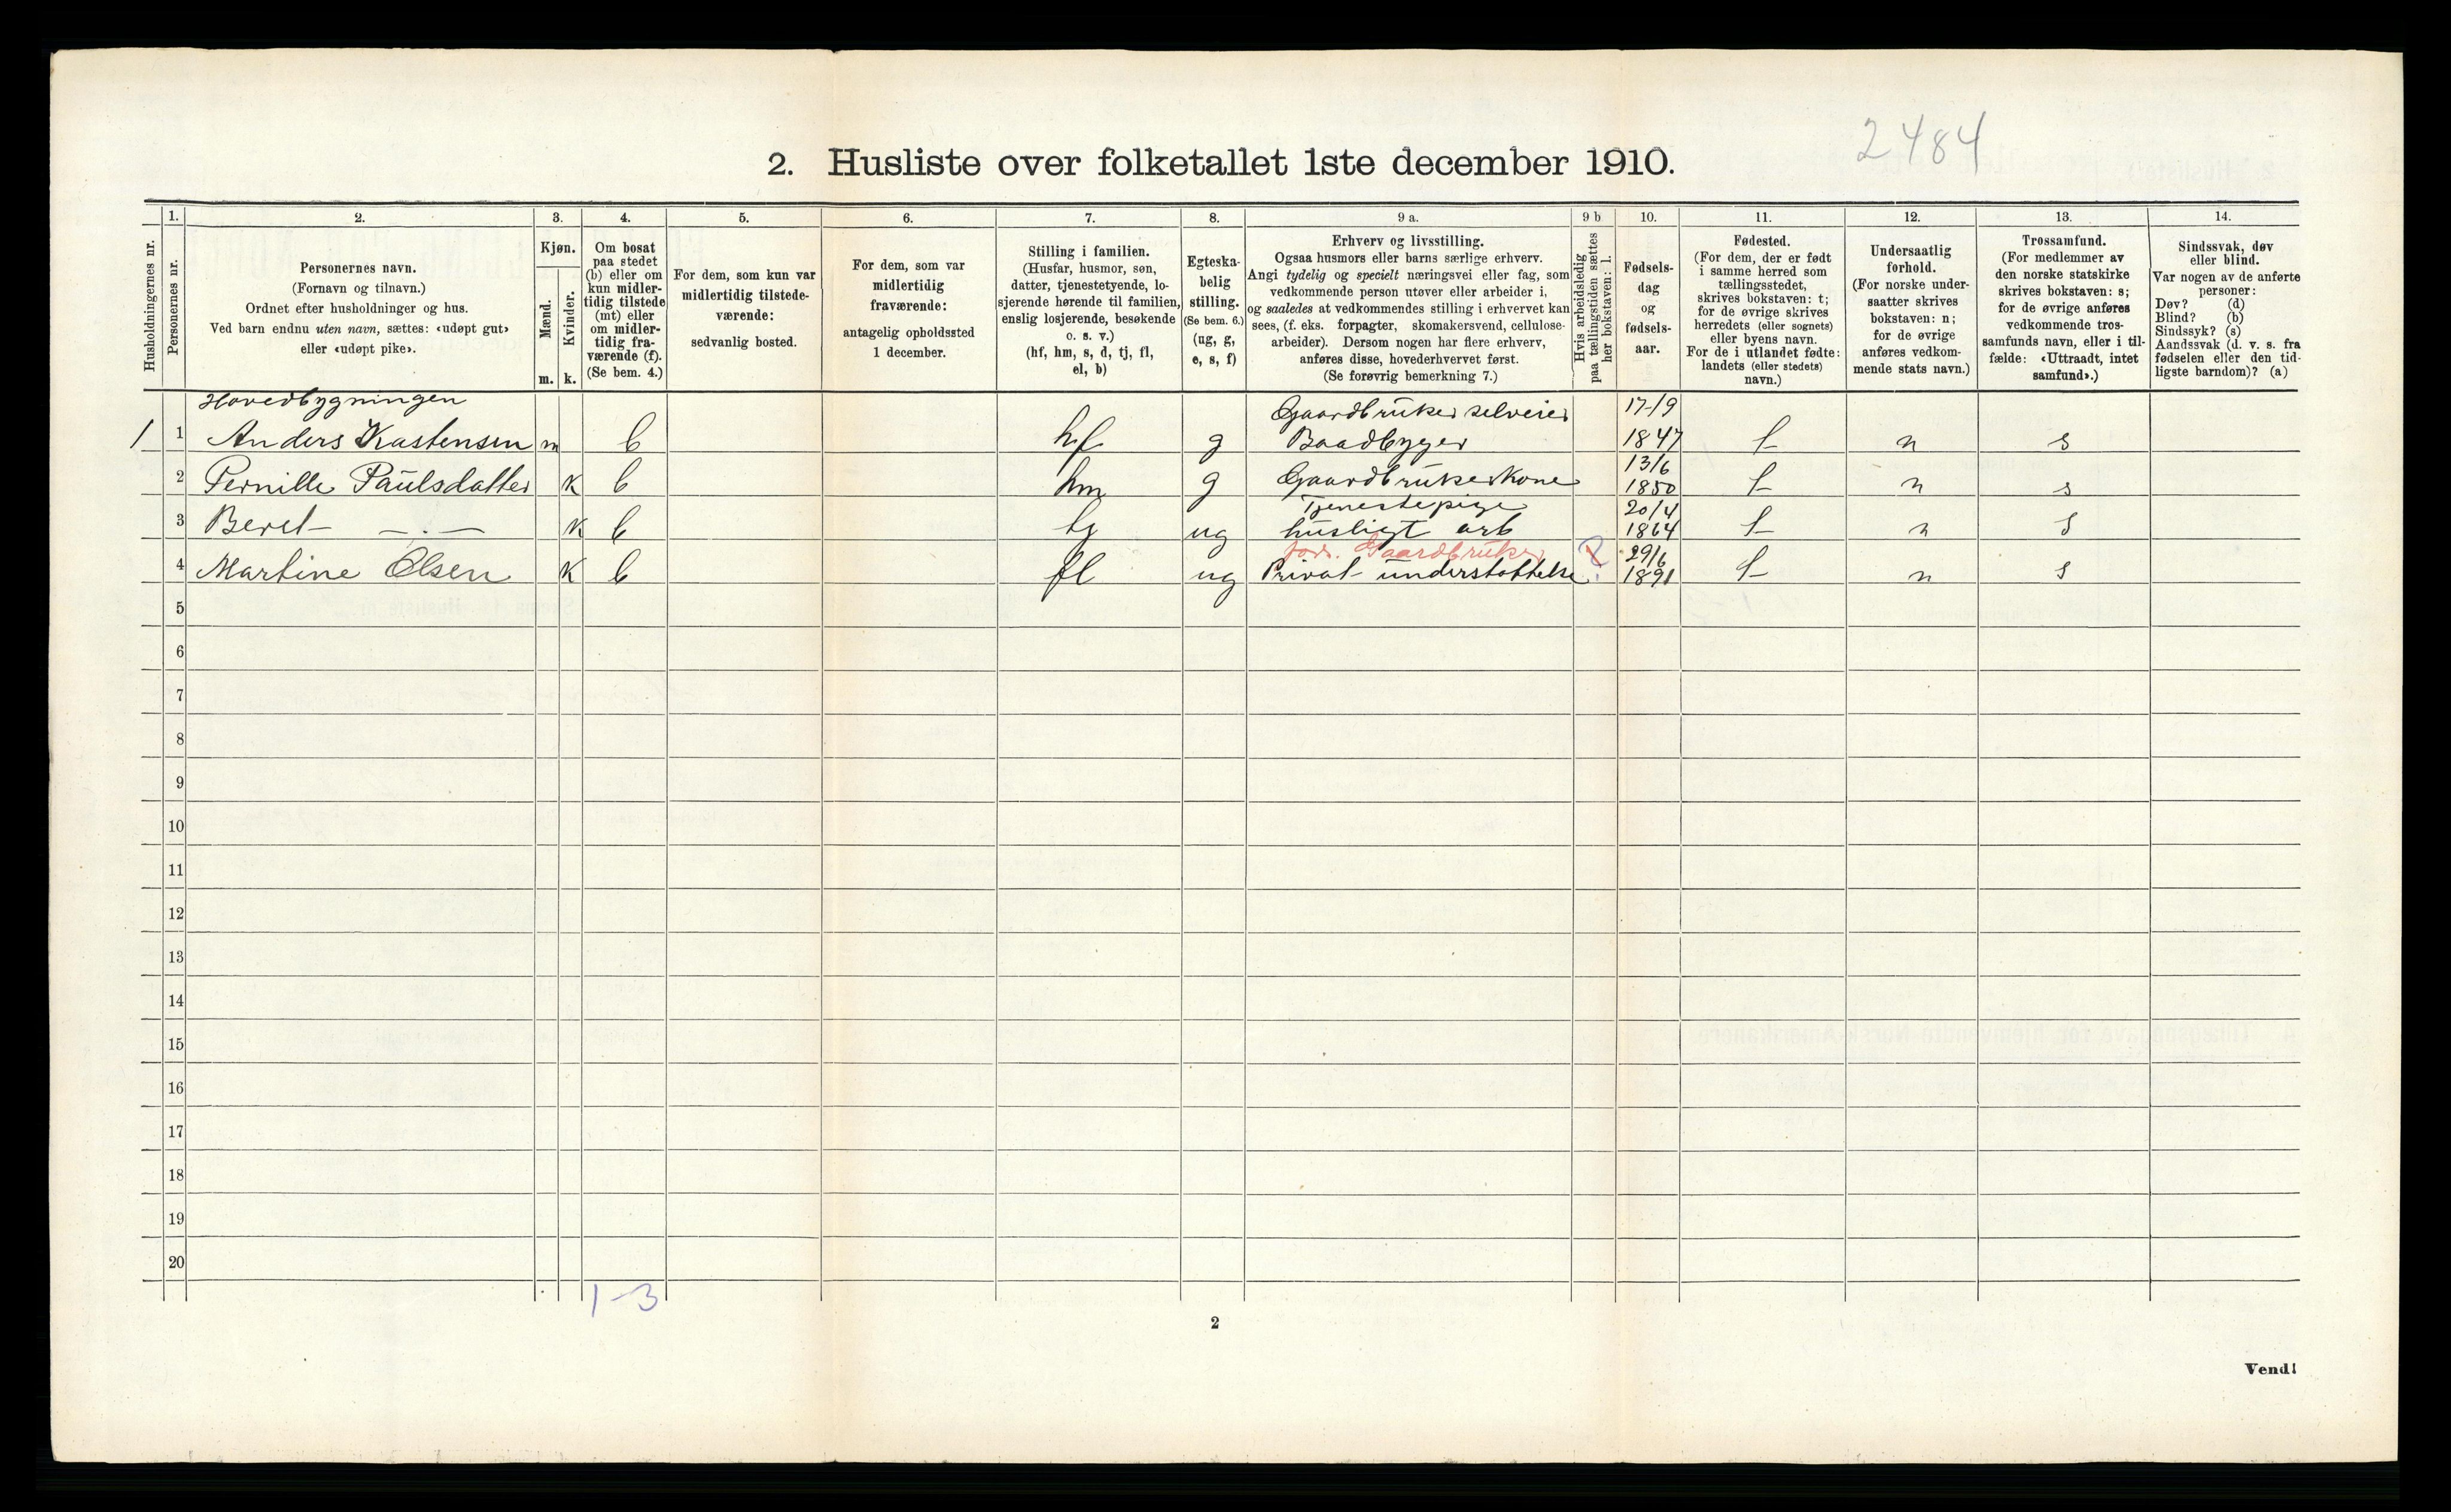 2484
2. Husliste over folketallet 1ste december 1910.
Husholdningernes nr.
1.
Personernes nr.
2.
Personernes navn.
(Fornavn og tilnavn.)
Ordnet efter husholdninger og hus.
Ved barn endnu uten navn, sættes: «udøpt gut»
eller «udøpt pike».
3.
Kjøn.
Mænd.
Kvinder.
m.
k.
4.
Om bosat
paa stedet
(b) eller om
kun midler-
tidig tilstede
(mt) eller
om midler-
tidig fra-
værende (f).
(Se bem. 4.)
5.
For dem, som kun var
midlertidig tilstede-
værende:
sedvanlig bosted.
6.
For dem, som var
midlertidig
fraværende:
antagelig opholdssted
1 december.
7.
Stilling i familien.
(Husfar, husmor, søn,
datter, tjenestetyende, lo-
sjerende hørende til familien,
enslig losjerende, besøkende
o. s. v.)
(hf, hm, s, d, tj, fl,
el, b)
8.
Egteska-
belig
stilling.
(Se bem. 6.)
(ug, g,
e, s, f)
9 a.
Erhverv og livsstilling.
Ogsaa husmors eller barns særlige erhverv.
Angi tydelig og specielt næringsvei eller fag, som
vedkommende person utøver eller arbeider i,
og saaledes at vedkommendes stilling i erhvervet kan
sees, (f. eks. forpagter, skomakersvend, cellulose-
arbeider). Dersom nogen har flere erhverv,
anføres disse, hovederhvervet først.
(Se forøvrig bemerkning 7.)
9 b
Hvis arbeidsledig
paa tællingstiden sættes
her bokstaven: l.
10.
Fødsels-
dag
og
fødsels-
aar.
11.
Fødested.
(For dem, der er født
i samme herred som
tællingsstedet,
skrives bokstaven: t;
for de øvrige skrives
herredets (eller sognets)
eller byens navn.
For de i utlandet fødte:
landets (eller stedets)
navn.)
12.
Undersaatlig
forhold.
(For norske under-
saatter skrives
bokstaven: n;
for de øvrige
anføres vedkom-
mende stats navn.)
13.
Trossamfund.
(For medlemmer av
den norske statskirke
skrives bokstaven: s;
for de øvrige anføres
vedkommende tros-
samfunds navn, eller i til-
fælde: «Uttraadt, intet
samfund».)
14.
Sindssvak, døv
eller blind.
Var nogen av de anførte
personer:
Døv? (d)
Blind? (b)
Sindssyk? (s)
Aandssvak (d. v. s. fra
fødselen eller den tid-
ligste barndom)? (a)
Hovedbygningen Gaardbruker selveier 17/9
1 1 Anders Kastensen m b hf g Baadbygger 1847 t n s
13/6
2 Pernille Paulsdatter k b hm g Gaardbrukerkone 1850 t n s
Tjenestepige 20/4
3 Beret —.— k b tj ug husligt arb 1864 t n s
fors. Gaardbruker 29/6
4 Martine Olsen k b fl ug Privat understøttelse 1891 t n s
5
6
7
8
9
10
11
12
13
14
15
16
17
18
19
20
1-3
2
Vend!